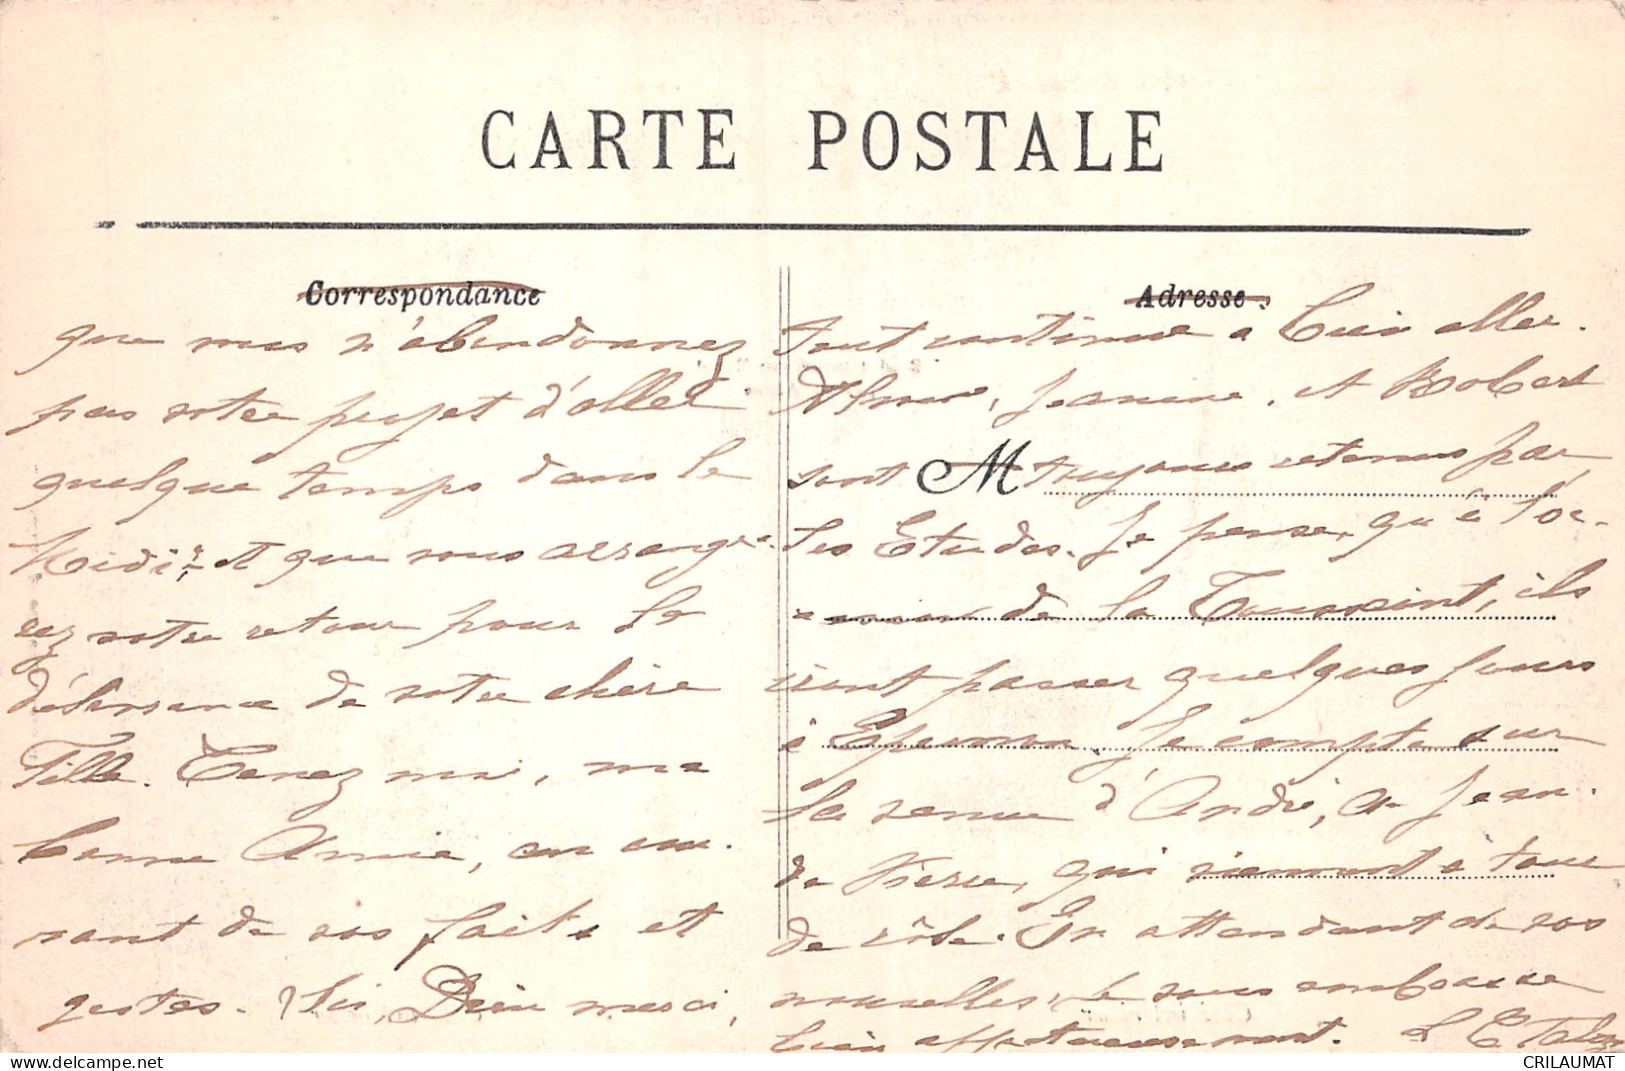 CARTE POSTALE
Correspondance
que vous n'abandonnez
pas votre projet d'aller
quelque temps dans le
Midi, et que vous arrange-
rez votre retour pour la
délivrance de votre chère
Fille. Tenez moi, ma
bonne Amie, au cou-
rant de vos faits et
gestes. Ici, Dieu merci,
Adresse
tout continue a bien aller.
Jeanne, et Robert
sont toujours retenus par
les Etudes. Je pense, qu'à l'oc-
casion de la Toussaint, ils
iront passer quelques jours
à Je compte sur
la venue d'André, et Jean-
de Pierre, qui viennent à tour
de rôle. En attendant de vos
nouvelles, je vous embrasse
bien affectueusement.
M
CRILAUMAT